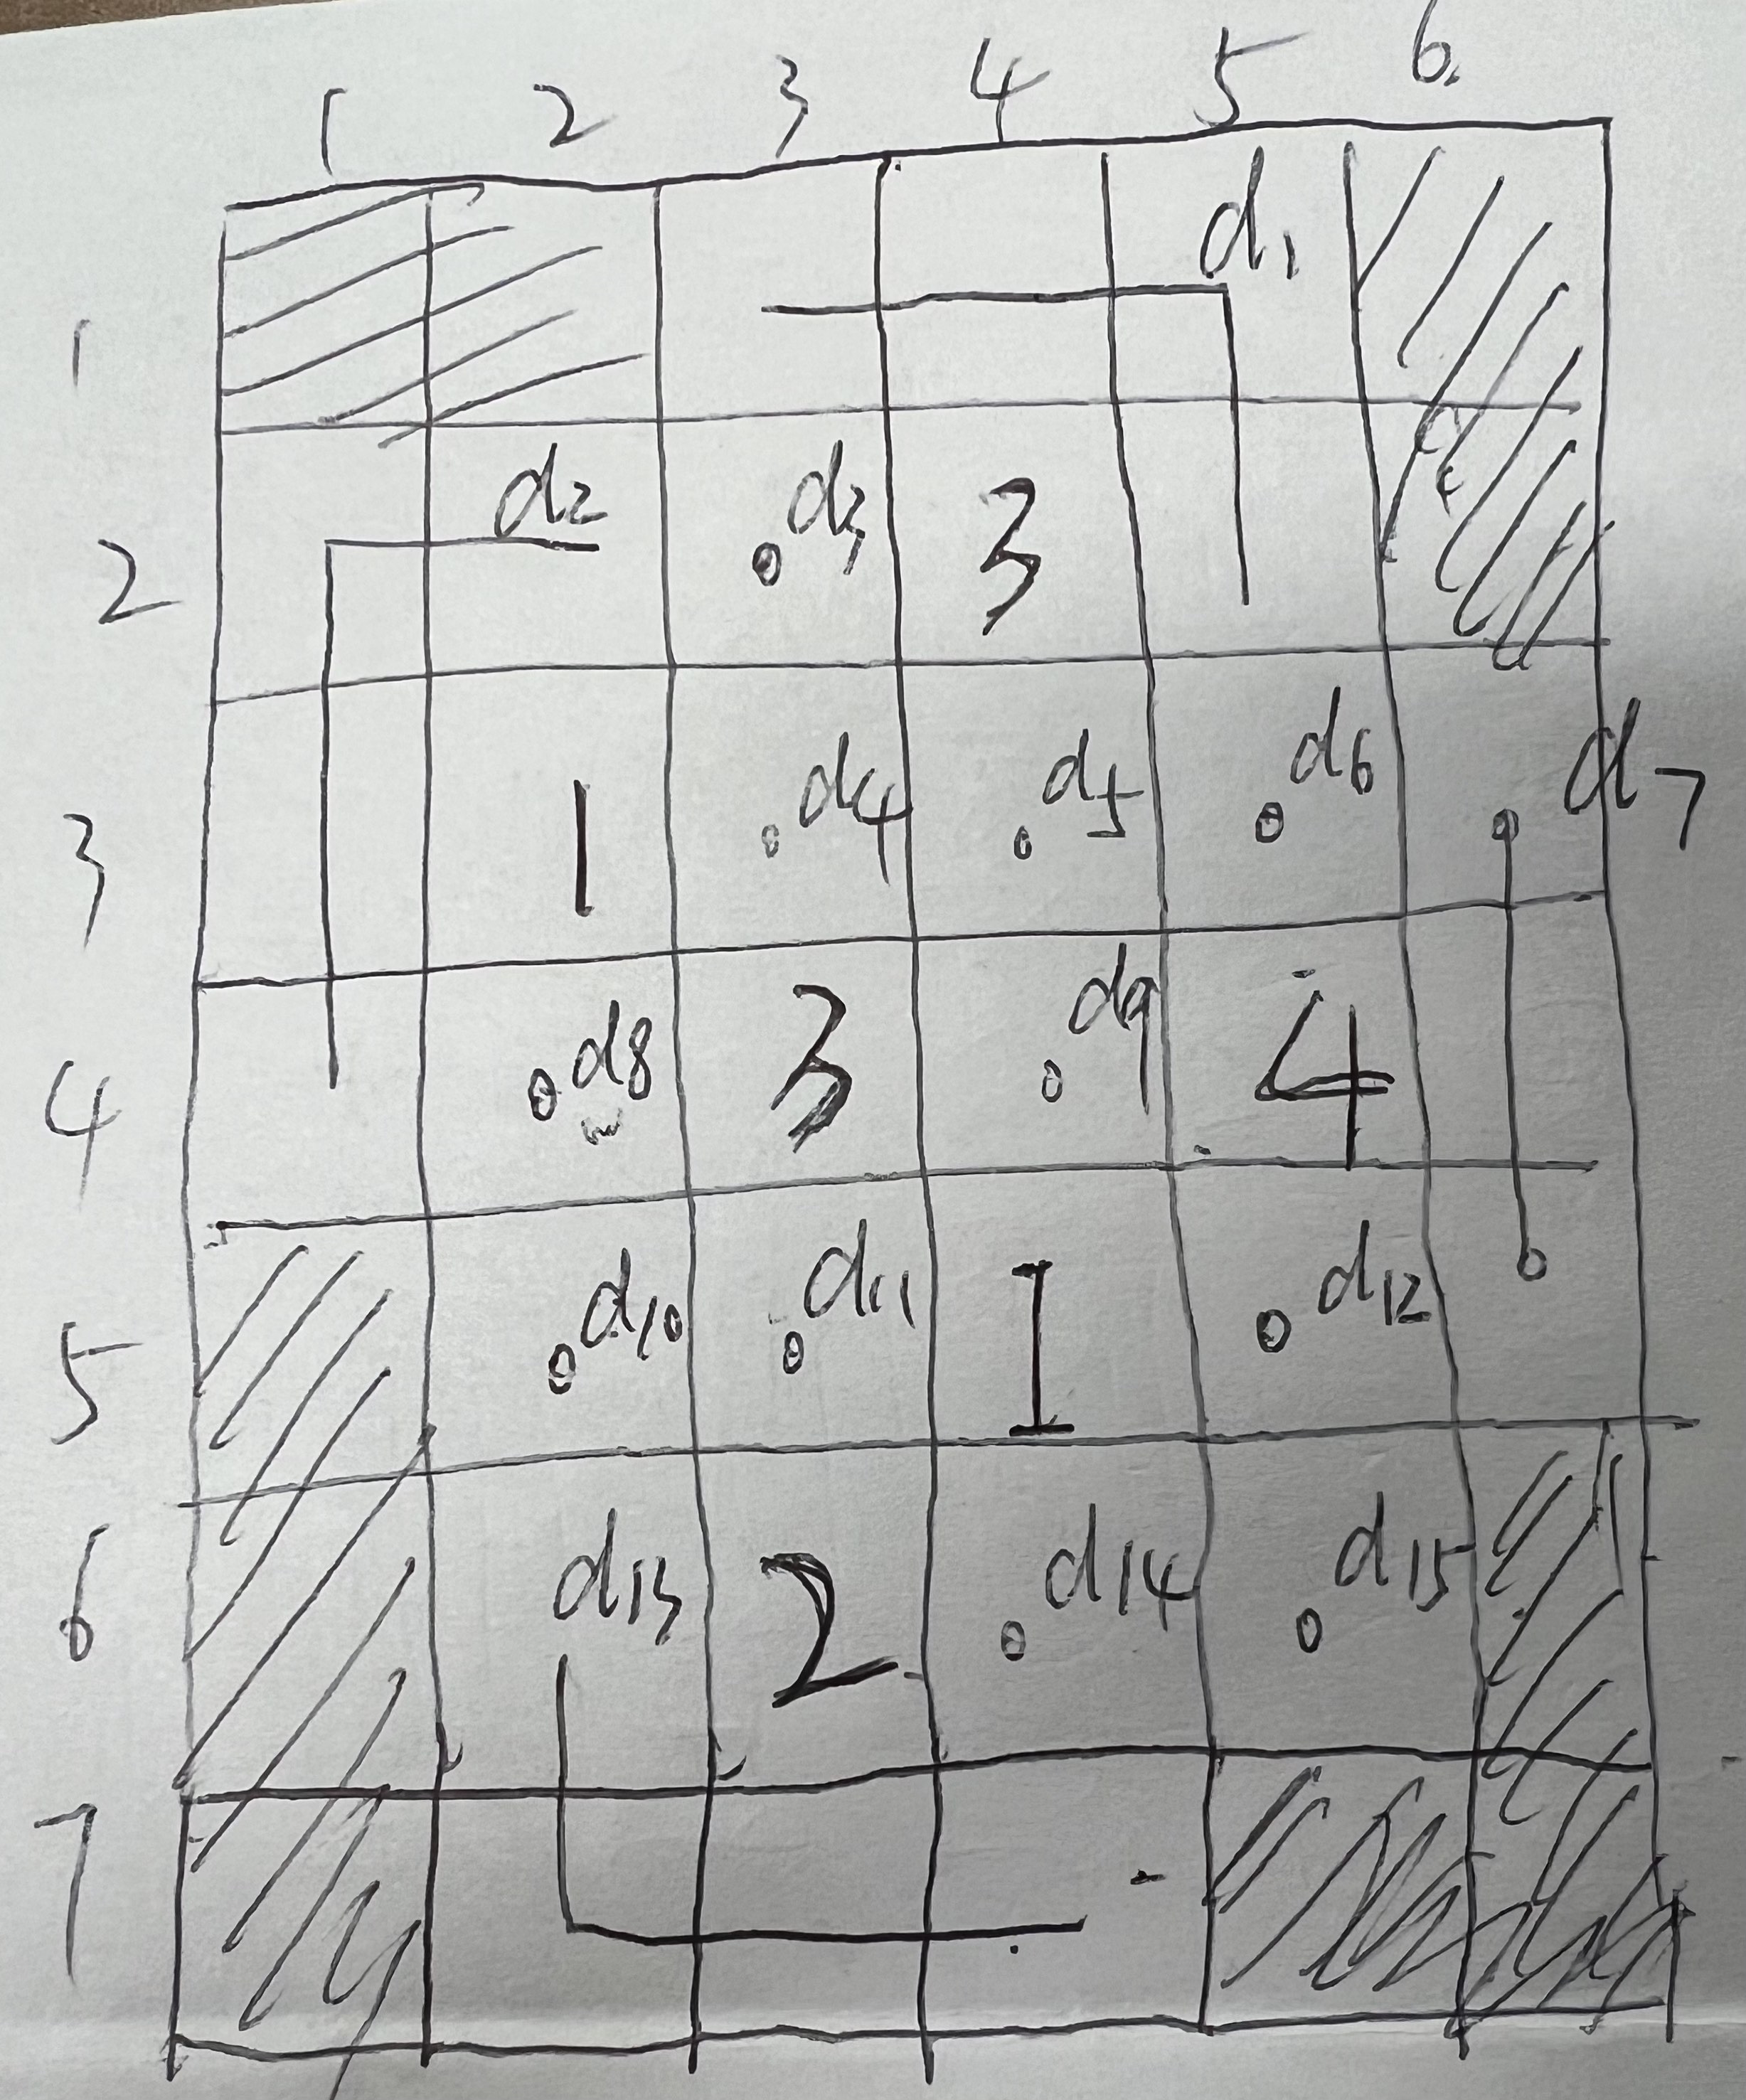 1 2 3 4 5 6
1 d1
2 d2 d3 3
3 1 d4 d5 d6 d7
4 d8 3 d9 4
5 d10 d11 1 d12
6 d13 2 d14 d15
7